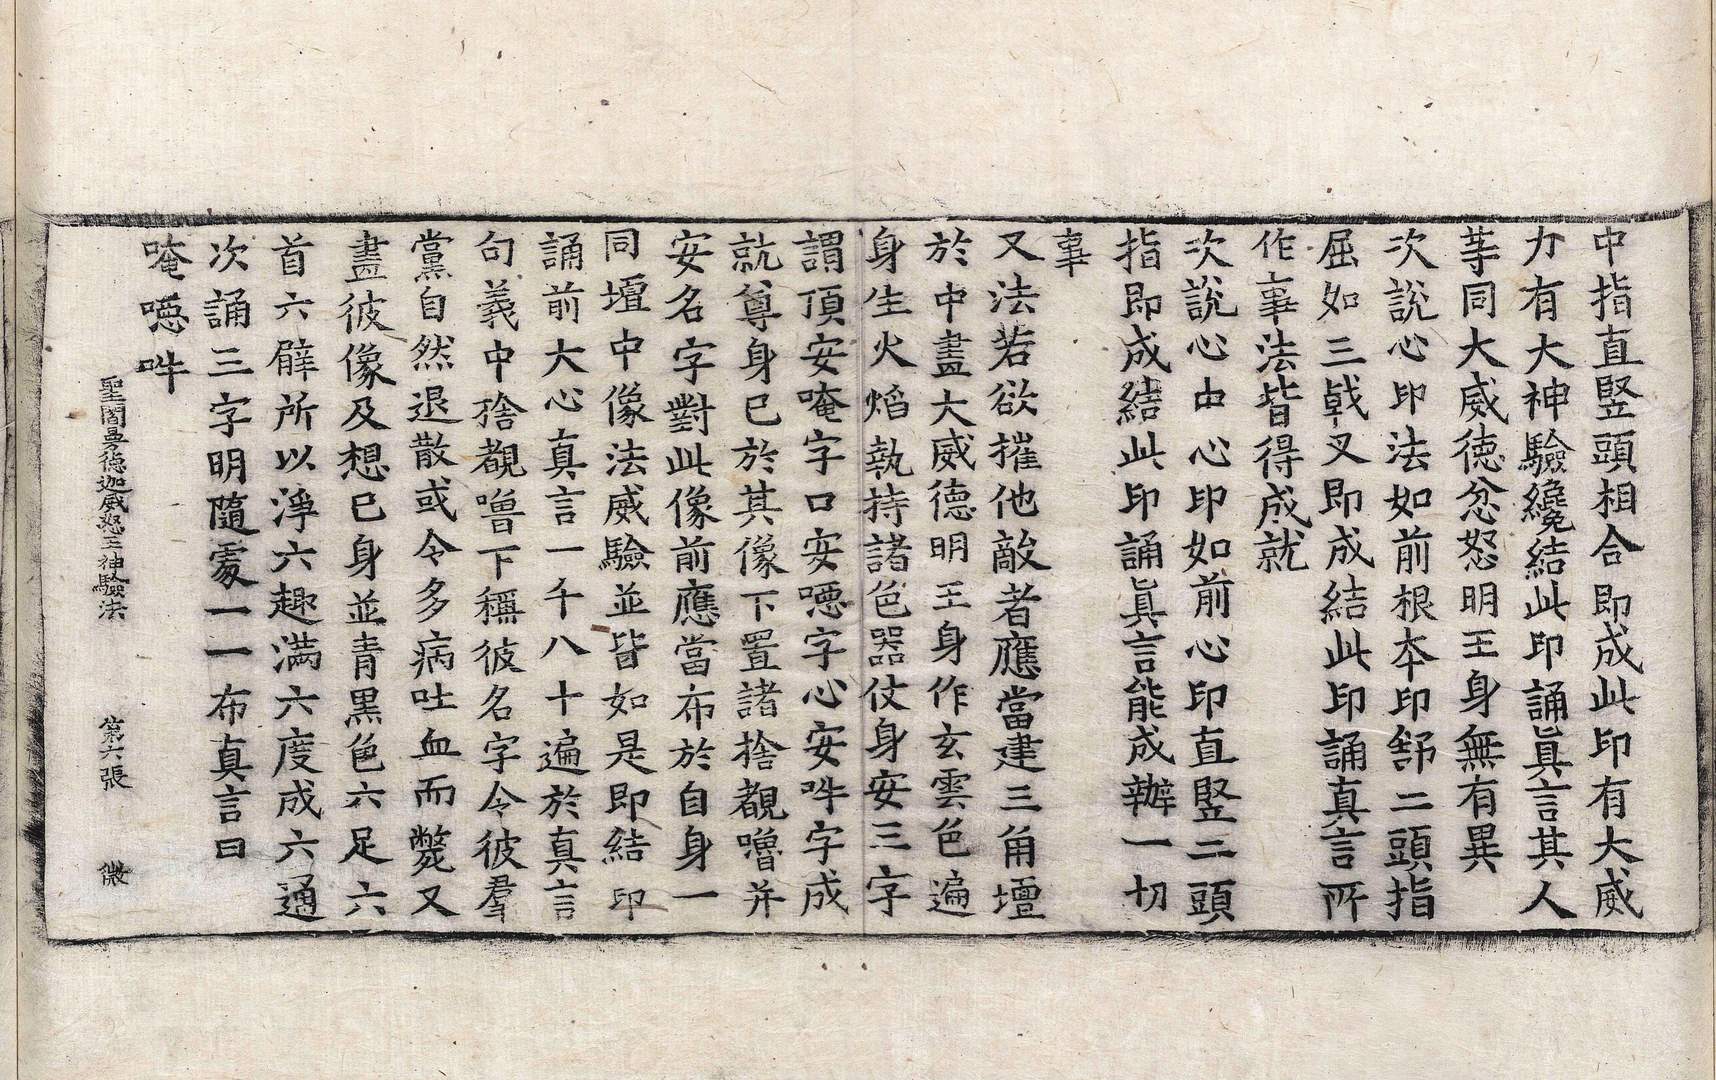 中指直竪頭相合即成此印有大威
力有大神驗纔結此印誦眞言其人
䓁同大威徳忿怒明王身無有異
次說心印法如前根本印舒二頭指
屈如三戟叉即成結此印誦真言所
作事法皆得成就
次說心中心印如前心印直竪二頭
指即成結此印誦眞言能成辦一切
事
又法若欲摧他敵者應當建三角壇
於中畫大威德明王身作玄雲色遍
身生火焰執持諸色器仗身安三字
謂頂安唵字口安𠺁字心安吽字成
就尊身已於其像下置諸捨覩嚕并
安名字對此像前應當布於自身一
同壇中像法威驗並皆如是即結印
誦前大心真言一千八十遍於真言
句義中捨覩嚕下稱彼名字令彼羣
黨自然退散或令多病吐血而斃又
畫彼像及想已身並青黒色六足六
首六臂所以淨六趣满六度成六通
次誦三字明隨處一一布真言曰
唵𠺁吽
聖閻曼德迦威怒王神驗法 第六張 微